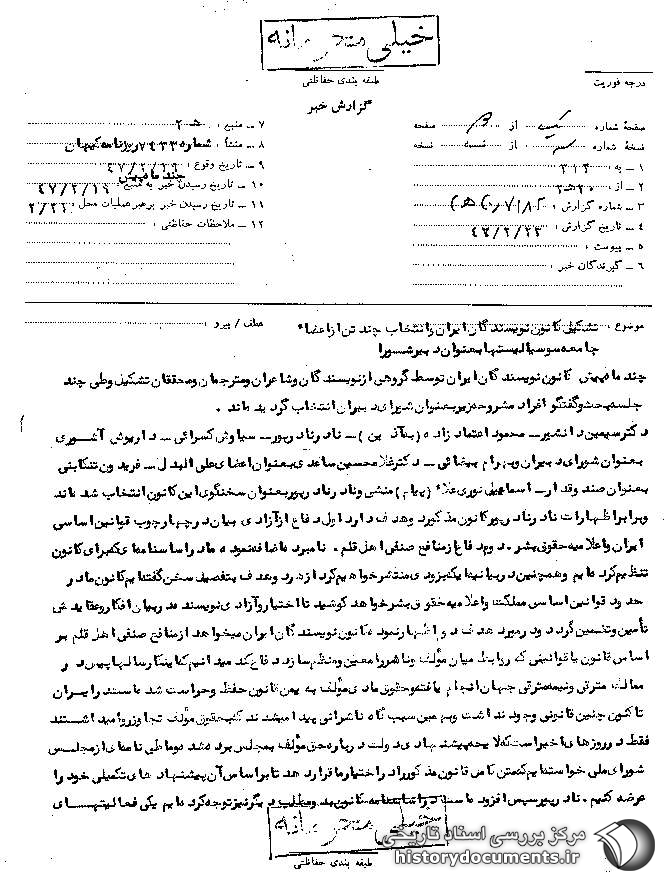 خیلی محرمانه
طبقه بندی حفاظتی
درجه فوریت
گزارش خبر
صفحهٔ شماره یک از صفحه
نسخهٔ شماره از نسخه
۱ ـ به : ۳۱۲
۲ ـ از :
۳ ـ شماره گزارش :
۴ ـ تاریخ گزارش :
۵ ـ پیوست :
۶ ـ گیرندگان خبر :
۷ ـ منبع :
۸ ـ منشأ : شماره ۷۴۳۳ روزنامه کیهان
۹ ـ تاریخ وقوع : چند ماه پیش
۱۰ ـ تاریخ رسیدن خبر به منبع :
۱۱ ـ تاریخ رسیدن خبر برهبر عملیات محل :
۱۲ ـ ملاحظات حفاظتی :
موضوع : تشکیل کانون نویسندگان ایران و انتخاب چند تن از اعضاء
عطف / پیرو :
جامعه سوسیالیستها بعنوان دبیر شورا
چند ماه پیش کانون نویسندگان ایران توسط گروهی از نویسندگان و شاعران و مترجمان و محققان تشکیل و طی چند
جلسه بحث و گفتگو افراد مشروحه زیر بعنوان شورای دبیران انتخاب گردیده‌اند .
دکتر سیمین دانشور ـ محمود اعتماد زاده (به‌آذین) ـ نادر نادرپور ـ سیاوش کسرائی ـ داریوش آشوری
بعنوان شورای دبیران و بهرام بیضائی ـ دکتر غلامحسین ساعدی بعنوان اعضای علی البدل ـ فریدون تنکابنی
بعنوان صندوقدار ـ اسماعیل نوری علاء (پیام) منشی و نادر نادرپور بعنوان سخنگوی این کانون انتخاب شده‌اند
و برابر اظهارات نادر نادرپور کانون مذکور دو هدف دارد اول دفاع از آزادی بیان در چهارچوب قوانین اساسی
ایران و اعلامیه حقوق بشر . دوم دفاع از منافع صنفی اهل قلم . نامبرده اضافه نموده ما در اساسنامه‌ایکه برای کانون
تنظیم کرده‌ایم و همچنین در بیانیه‌ایکه بزودی منتشر خواهیم کرد از هر دو هدف بتفصیل سخن گفته‌ایم کانون ما در
حدود قوانین اساسی مملکت و اعلامیه حقوق بشر خواهد کوشید تا اختیار و آزادی نویسنده در بیان افکار و عقایدش
تأمین و تضمین گردد و در مورد هدف دوم اظهار نموده کانون نویسندگان ایران میخواهد از منافع صنفی اهل قلم بر
اساس قانون یا قوانینی که روابط میان مؤلف و ناشر را معین و منظم سازد دفاع کند میدانیم که اینکار سالها پیش در
ممالک مترقی و نیمه مترقی جهان انجام یافته و حقوق مادی مؤلف به یمن قانون حفظ و حراست شده است در ایران
تا کنون چنین قانونی وجود نداشت و بهمین سبب گاه ناشرانی پیدا میشدند که بحقوق مؤلف تجاوز روا میداشتند
فقط در روزهای اخیر است که لایحه پیشنهادی دولت درباره حق مؤلف بمجلس برده شد و ما طی نامه‌ای از مجلس
شورای ملی خواسته‌ایم که متن کامل قانون مذکور را در اختیار ما قرار دهد تا بر اساس آن پیشنهادهای تکمیلی خود را
عرضه کنیم . نادرپور سپس افزوده است در اساسنامه کانون بدو مطلب دیگر نیز توجه کرده‌ایم یکی فعالیتهای
خیلی محرمانه
طبقه بندی حفاظتی
مرکز بررسی اسناد تاریخی
historydocuments.ir